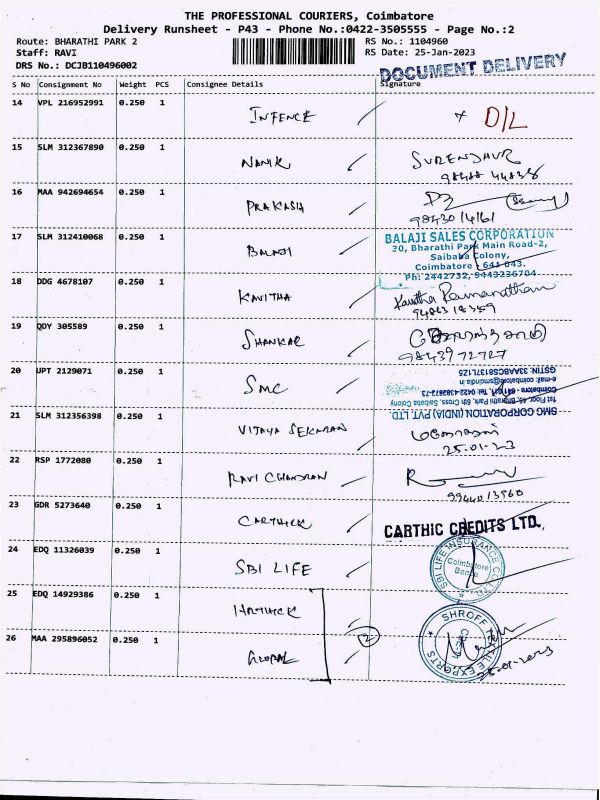 THE PROFESSIONAL COURIERS, Coimbatore
Delivery Runsheet - P43 - Phone No.:0422-3505555 - Page No.:2
Route: BHARATHI PARK 2 RS No.: 1104960
Staff: RAVI RS Date: 25-Jan-2023
DRS No.: DCJB110496002
DOCUMENT DELIVERY
S No Consignment No Weight PCS Consignee Details Signature
14 VPL 216952991 0.250 1 INFENCE D/L
15 SLM 312367890 0.250 1 NANIK SURENDHUR
98488 44838
16 MAA 942694654 0.250 1 PRAKASH
98430 14161
17 SLM 312410068 0.250 1 BALAJI BALAJI SALES CORPORATION
30, Bharathi Park Main Road-2,
Saibaba Colony,
Coimbatore - 641 043.
Ph: 2442732, 9443236704
18 DDG 4678107 0.250 1 KAVITHA Kavitha Ramanathan
19 QDY 305589 0.250 1 SHANKAR
98439 72727
20 UPT 2129071 0.250 1 SMC
SMC CORPORATION (INDIA) PVT. LTD
e-mail: coimbatore@smcindia.in
21 SLM 312356398 0.250 1 VIJAYA SEKARAN
25.01.23
22 RSP 1772080 0.250 1 RAVI CHANDRAN
99440 13560
23 GDR 5273640 0.250 1 CARTHICK CARTHIC CREDITS LTD.,
24 EDQ 11326039 0.250 1 SBI LIFE SBI LIFE INSURANCE
Coimbatore
25 EDQ 14929386 0.250 1
2
26 MAA 295896052 0.250 1 GLOPAL SHROFF TEXTILE EXPORTS